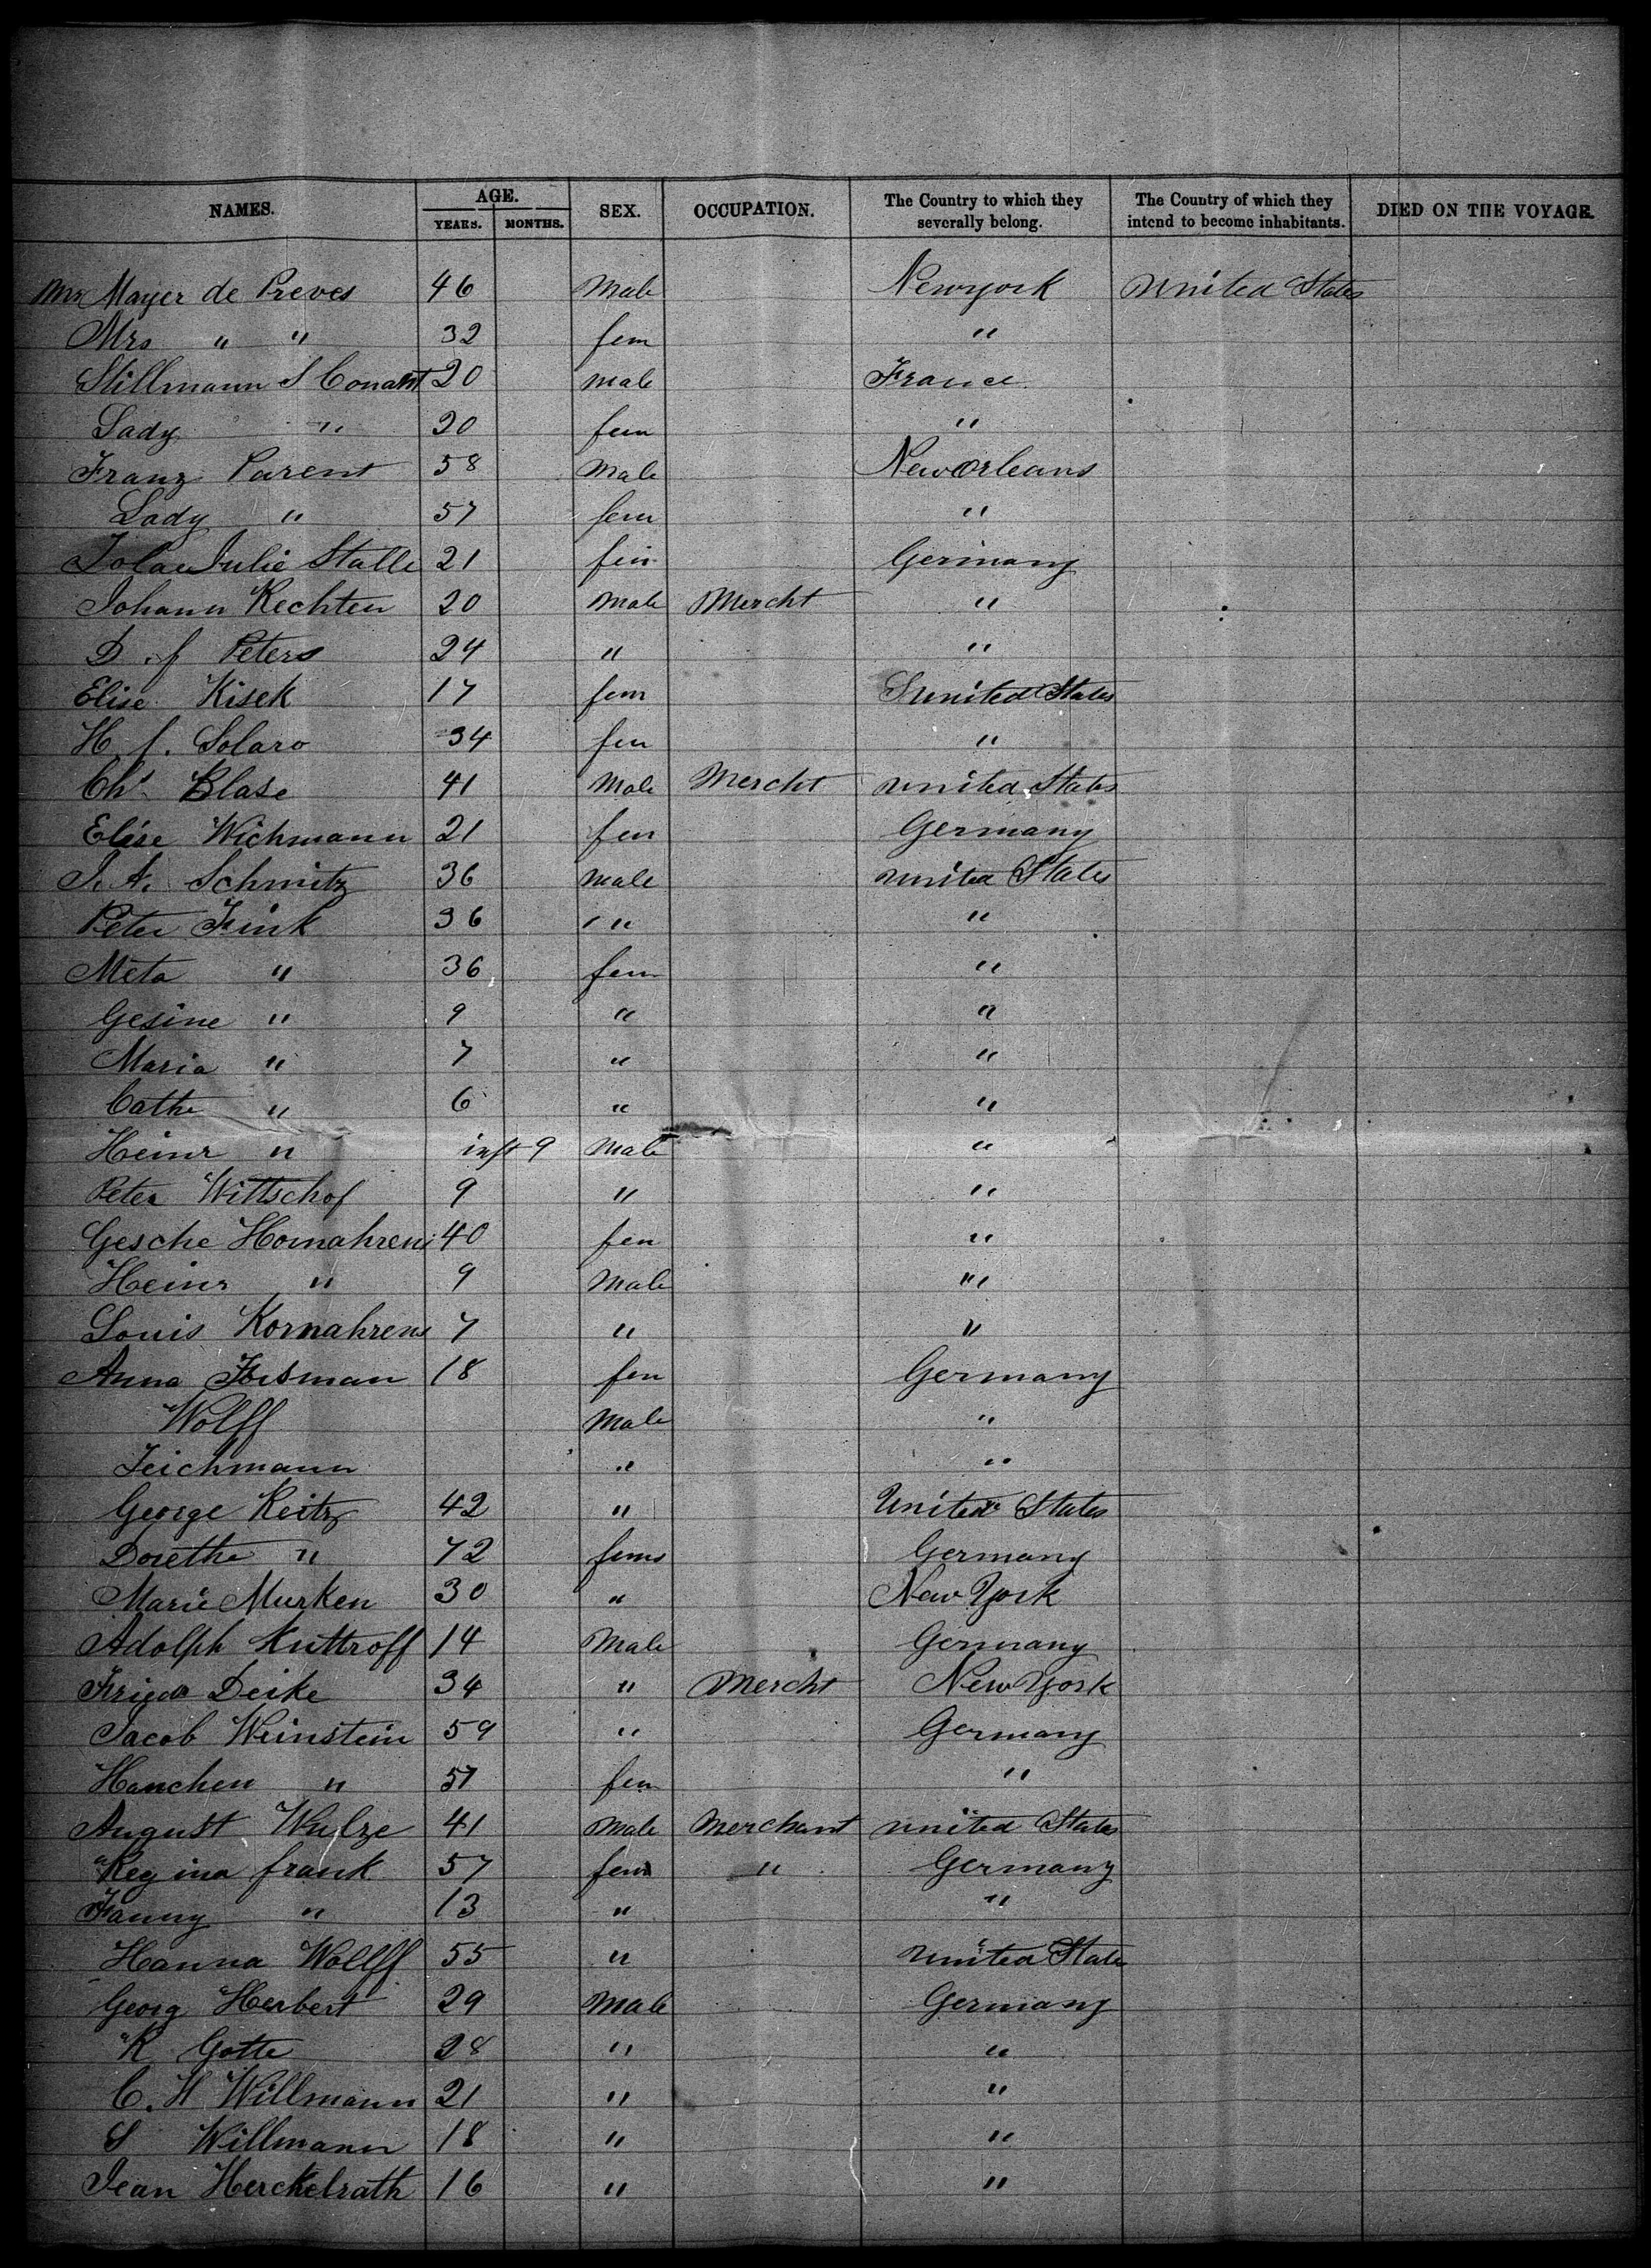 NAMES. AGE. YEARS. MONTHS. SEX. OCCUPATION. The Country to which they severally belong. The Country of which they intend to become inhabitants. DIED ON THE VOYAGE.
Mr Mayer de Preves 46 Male Newyork United States
Mrs " " 32 fem "
Stillmann S Conant 20 male France
Lady " 20 fem "
Franz Parent 58 Male New Orleans
Lady " 57 fem "
Julie Stalle 21 fem Germany
Johann Kechten 20 Male Mercht "
D. f Peters 24 " "
Elise Kisek 17 fem United States
H. f. Solaro 34 fem "
Chs Blase 41 Male Mercht united States
Elise Wichmann 21 fem Germany
J. A. Schmitz 36 male united States
Peter Fink 36 " "
Meta " 36 fem "
Gesine " 9 " "
Maria " 7 " "
Cathe " 6 " "
Heinr " inft 9 Male "
Peter Wittschof 9 " "
Gesche Hornahrens 40 fem "
Heinr " 9 Male "
Louis Kornahrens 7 " "
Anna 18 fem Germany
Wolff Male "
Teichmann " "
George Reitz 42 " United States
Dorethe " 72 fem Germany
Marie Murken 30 " New York
Adolph Kuttroff 14 Male Germany
Friedr Deike 34 " Mercht New York
Jacob Weinstein 59 " Germany
Hanchen " 57 fem "
August Wulze 41 Male Merchant united States
Regina frank 57 fem " Germany
Fanny " 13 " "
Hanna Wolff 55 " united States
Georg Herbert 29 Male Germany
R Gotte 28 " "
C. H Willmann 21 " "
S Willmann 18 " "
Jean Herckelrath 16 " "